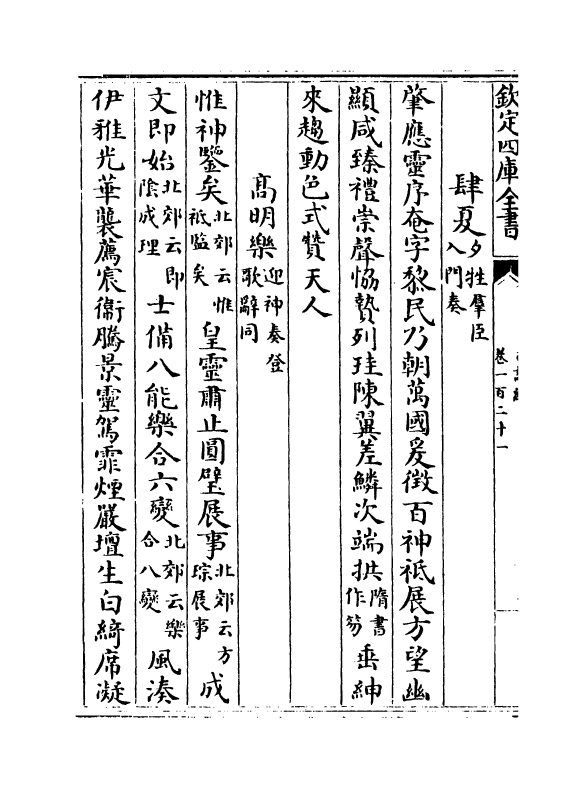 欽定四庫全書
卷一百二十一
肆夏夕牲羣臣入門奏
肇應靈序奄字黎民乃朝萬國爰徵百神祗展方望幽
顯咸臻禮崇聲恊贄列珪陳翼差鱗次端拱隋書作笏垂紳
來趨動色式贊天人
髙明樂迎神奏登歌辭同
惟神鑒矣北郊云惟祗監矣皇靈肅止圓璧展事北郊云方琮展事成
文即始北郊云即陰成理士備八能樂合六變北郊云樂合八變風湊
伊雅光華襲薦宸衞騰景靈駕霏煙嚴壇生白綺席凝